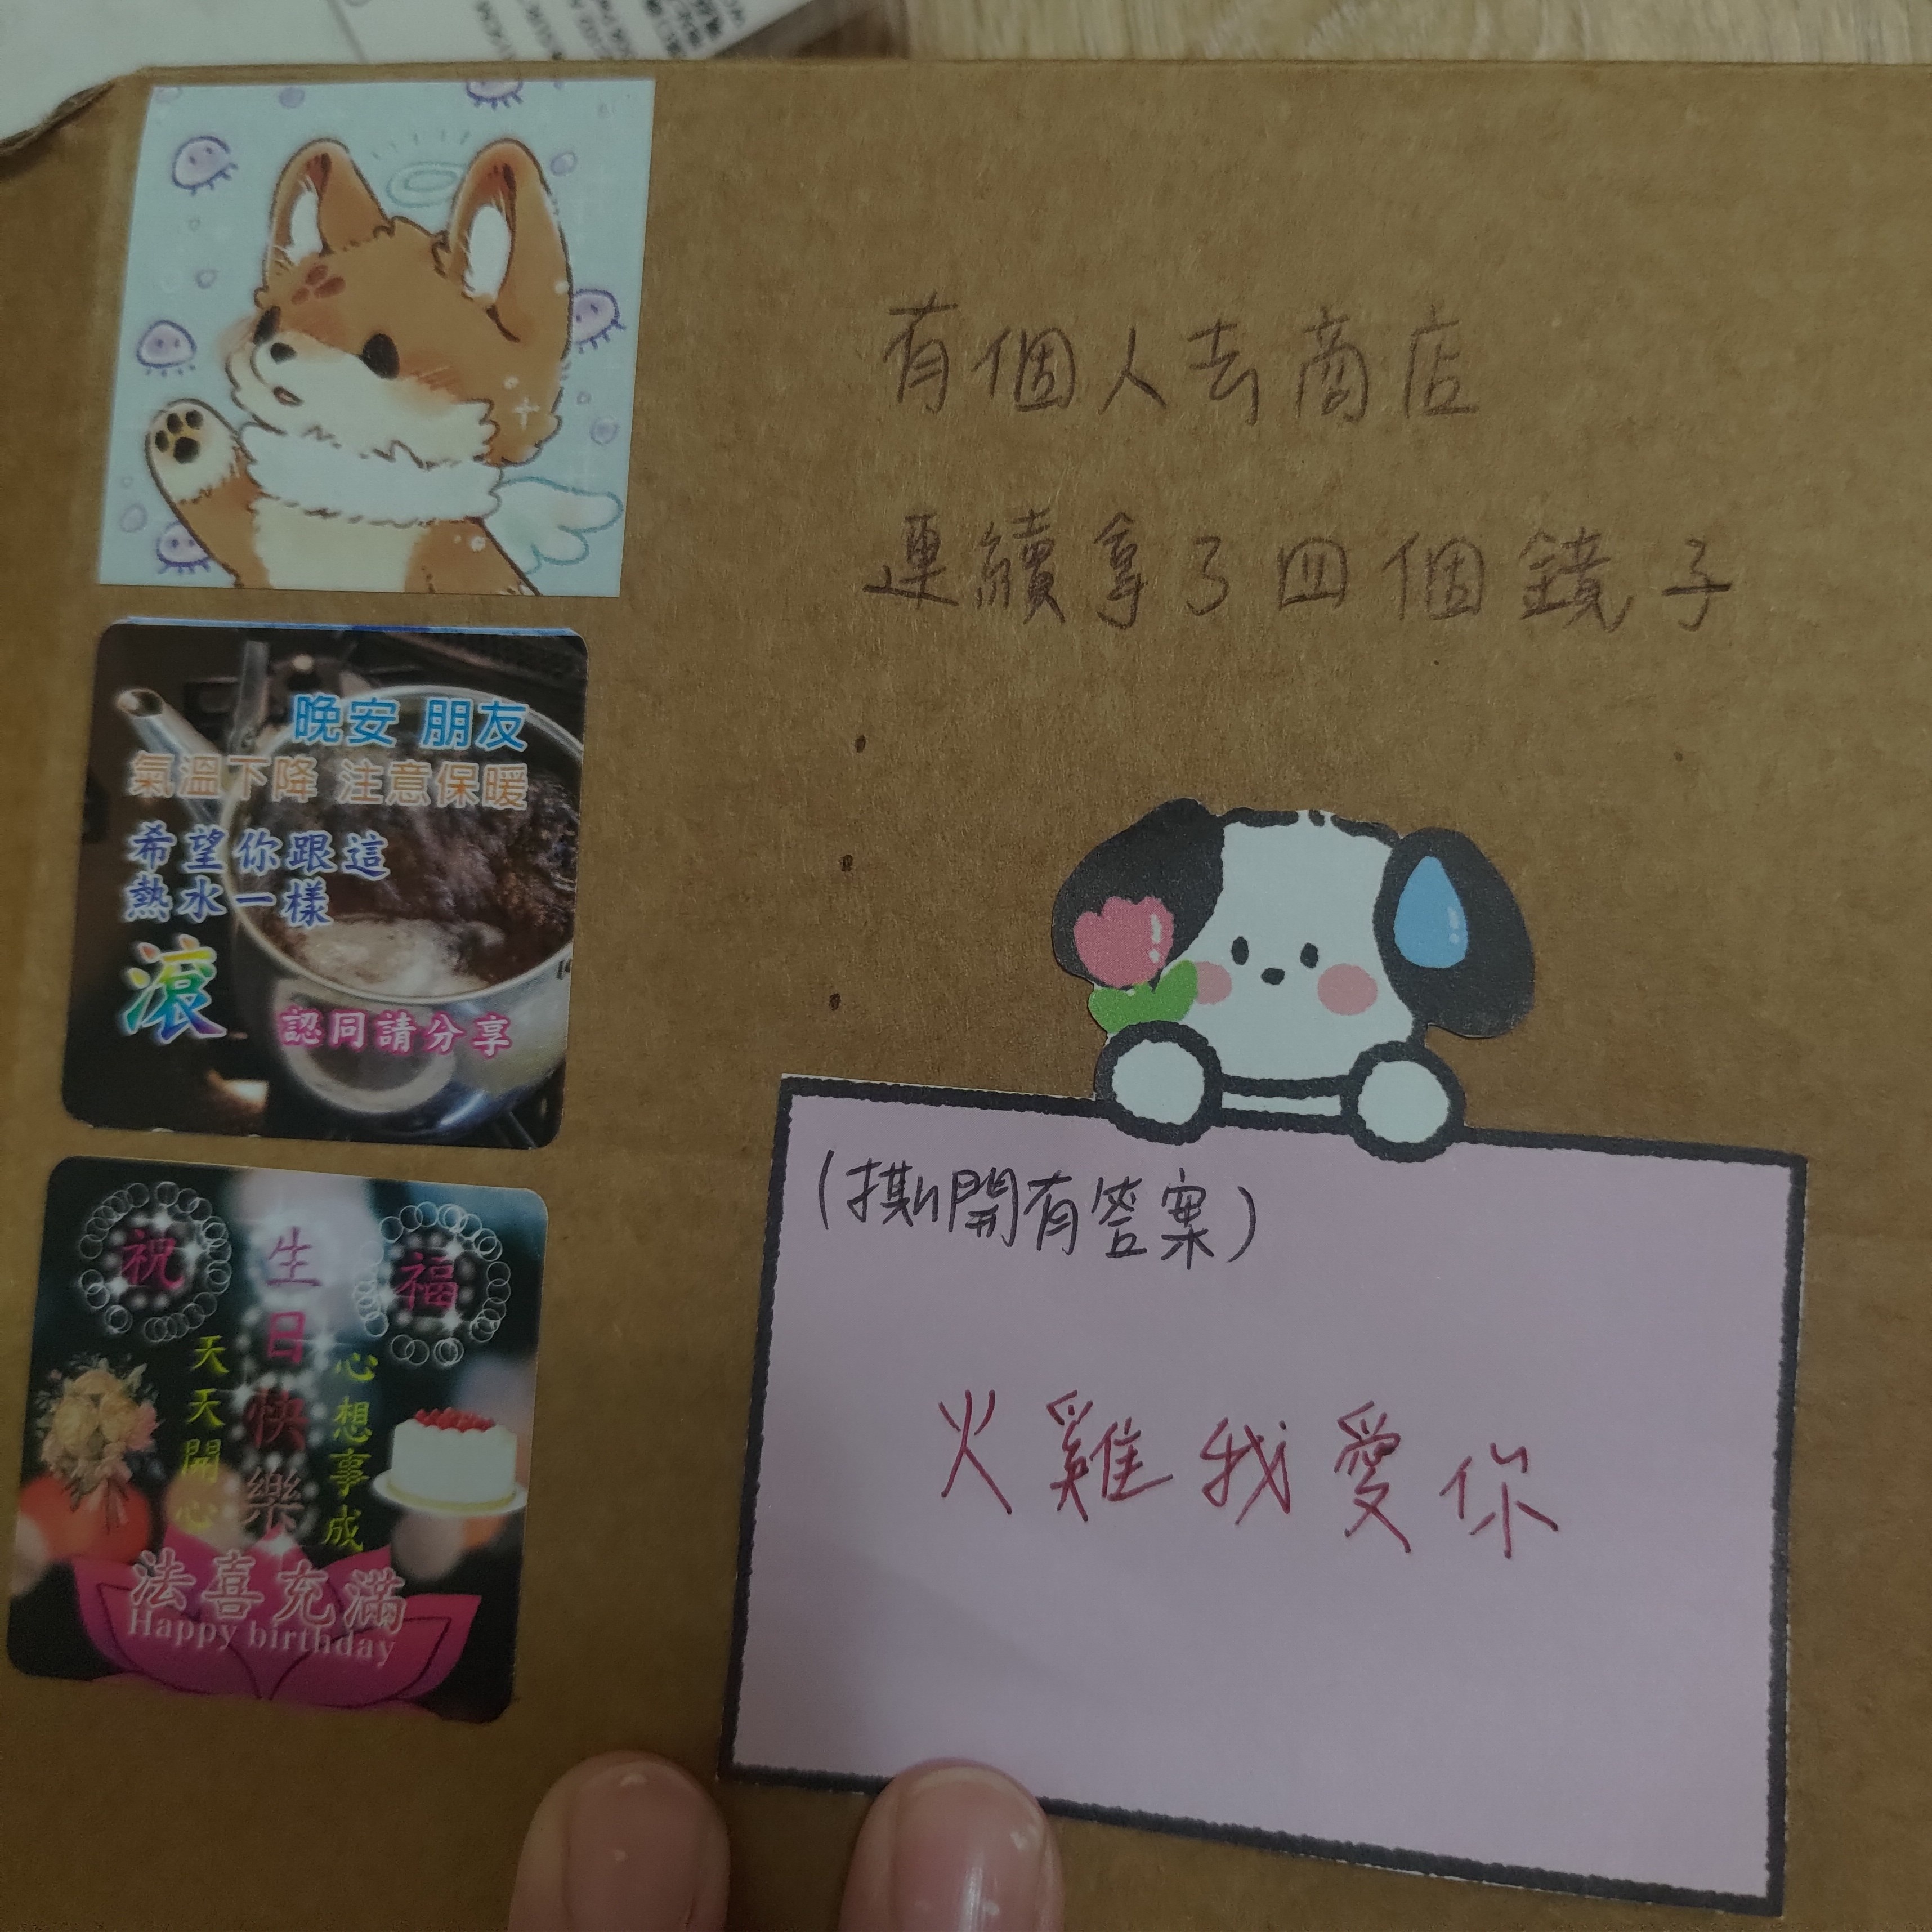 有個人去商店
連續拿了四個鏡子
晚安 朋友
氣溫下降 注意保暖
希望你跟這
熱水一樣
滾
認同請分享
(撕開有答案)
火雞我愛你
祝 福
生日快樂
天天開心
心想事成
法喜充滿
Happy birthday